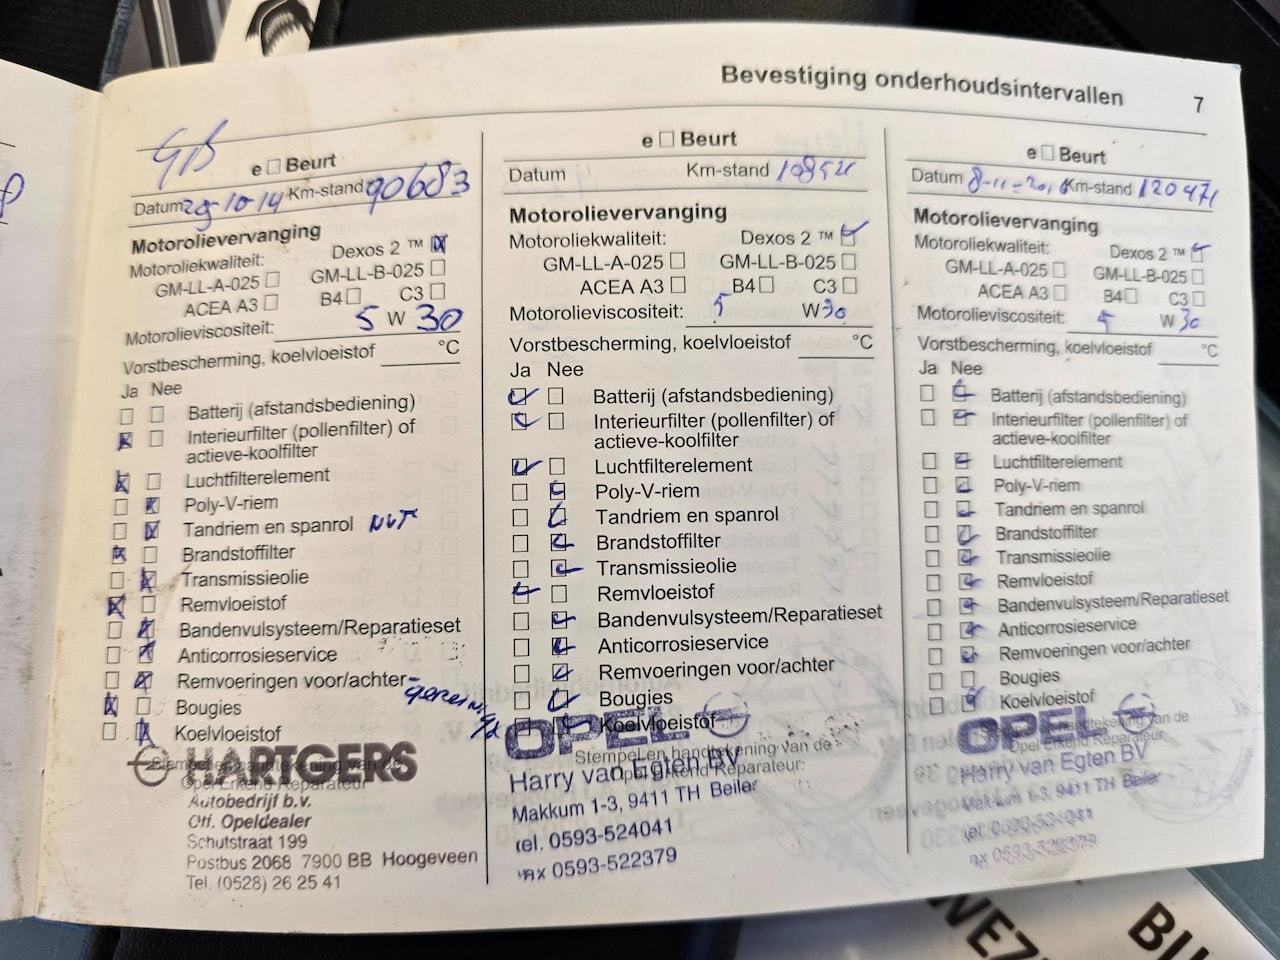 Bevestiging onderhoudsintervallen
7
e □ Beurt
Datum 29-10-14 Km-stand 90683
Motorolievervanging
Motoroliekwaliteit: Dexos 2 ™
GM-LL-A-025 GM-LL-B-025
ACEA A3 B4 C3
Motorolieviscositeit: 5 W 30
Vorstbescherming, koelvloeistof °C
Ja Nee
Batterij (afstandsbediening)
Interieurfilter (pollenfilter) of
actieve-koolfilter
Luchtfilterelement
Poly-V-riem
Tandriem en spanrol
Brandstoffilter
Transmissieolie
Remvloeistof
Bandenvulsysteem/Reparatieset
Anticorrosieservice
Remvoeringen voor/achter
Bougies
Koelvloeistof
Stempel en handtekening van de
Opel Erkend Reparateur
HARTGERS
Autobedrijf b.v.
Off. Opeldealer
Schutstraat 199
Postbus 2068 7900 BB Hoogeveen
Tel. (0528) 26 25 41
e □ Beurt
Datum Km-stand
Motorolievervanging
Motoroliekwaliteit: Dexos 2 ™
GM-LL-A-025 GM-LL-B-025
ACEA A3 B4 C3
Motorolieviscositeit: 5 W 30
Vorstbescherming, koelvloeistof °C
Ja Nee
Batterij (afstandsbediening)
Interieurfilter (pollenfilter) of
actieve-koolfilter
Luchtfilterelement
Poly-V-riem
Tandriem en spanrol
Brandstoffilter
Transmissieolie
Remvloeistof
Bandenvulsysteem/Reparatieset
Anticorrosieservice
Remvoeringen voor/achter
Bougies
Koelvloeistof
Stempel en handtekening van de
Opel Erkend Reparateur:
OPEL
Harry van Egten BV
Makkum 1-3, 9411 TH Beilen
tel. 0593-524041
fax 0593-522379
e □ Beurt
Datum Km-stand 120471
Motorolievervanging
Motoroliekwaliteit: Dexos 2 ™
GM-LL-A-025 GM-LL-B-025
ACEA A3 B4 C3
Motorolieviscositeit: 5 W 30
Vorstbescherming, koelvloeistof °C
Ja Nee
Batterij (afstandsbediening)
Interieurfilter (pollenfilter) of
actieve-koolfilter
Luchtfilterelement
Poly-V-riem
Tandriem en spanrol
Brandstoffilter
Transmissieolie
Remvloeistof
Bandenvulsysteem/Reparatieset
Anticorrosieservice
Remvoeringen voor/achter
Bougies
Koelvloeistof
Stempel en handtekening van de
Opel Erkend Reparateur:
OPEL
Harry van Egten BV
Makkum 1-3, 9411 TH Beilen
tel. 0593-524041
fax 0593-522379